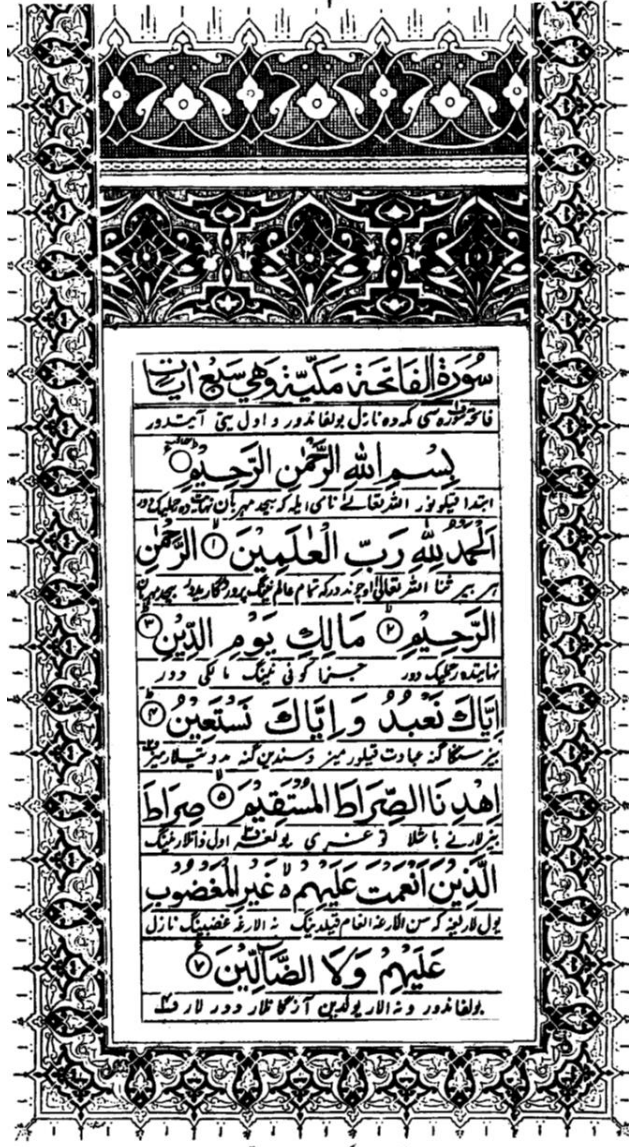 سُورَةُ الْفَاتِحَةِ مَكِّيَّةٌ وَهِيَ سَبْعُ اٰيَاتٍ
فاتحه سوره سی مکه ده نازل بولغاندور و اول یتی آیت دور
بِسْمِ اللهِ الرَّحْمٰنِ الرَّحِيْمِ
ابتدا الله تعالی نامی ایله که بیحد مهربان
اَلْحَمْدُ لِلّٰهِ رَبِّ الْعٰلَمِيْنَ ۱ الرَّحْمٰنِ
هر بیر ثنا الله تعالی اوچوندورکه تمام عالم نینگ بیحد مهربان
الرَّحِيْمِ ۲ مَالِكِ يَوْمِ الدِّيْنِ ۳
نهایتده رحملیک دور جزا کونی نینگ مالکی دور
اِيَّاكَ نَعْبُدُ وَ اِيَّاكَ نَسْتَعِيْنُ ۴
بیز سنگا گنه عبادت قیلورمیز و سندین گنه مدد تیلارمیز
اِهْدِنَا الصِّرَاطَ الْمُسْتَقِيْمَ ۵ صِرَاطَ
بیزلارنی باشلا توغری یولغه اول ذاتلارنینگ
الَّذِيْنَ اَنْعَمْتَ عَلَيْهِمْ ۶ غَيْرِ الْمَغْضُوْبِ
یول لاریغه که سن الارغه انعام قیلدینگ نه الارغه غضبینگ نازل
عَلَيْهِمْ وَلَا الضَّآلِّيْنَ ۷
بولغاندور و نه الار یولدین آزگانلار دورلار